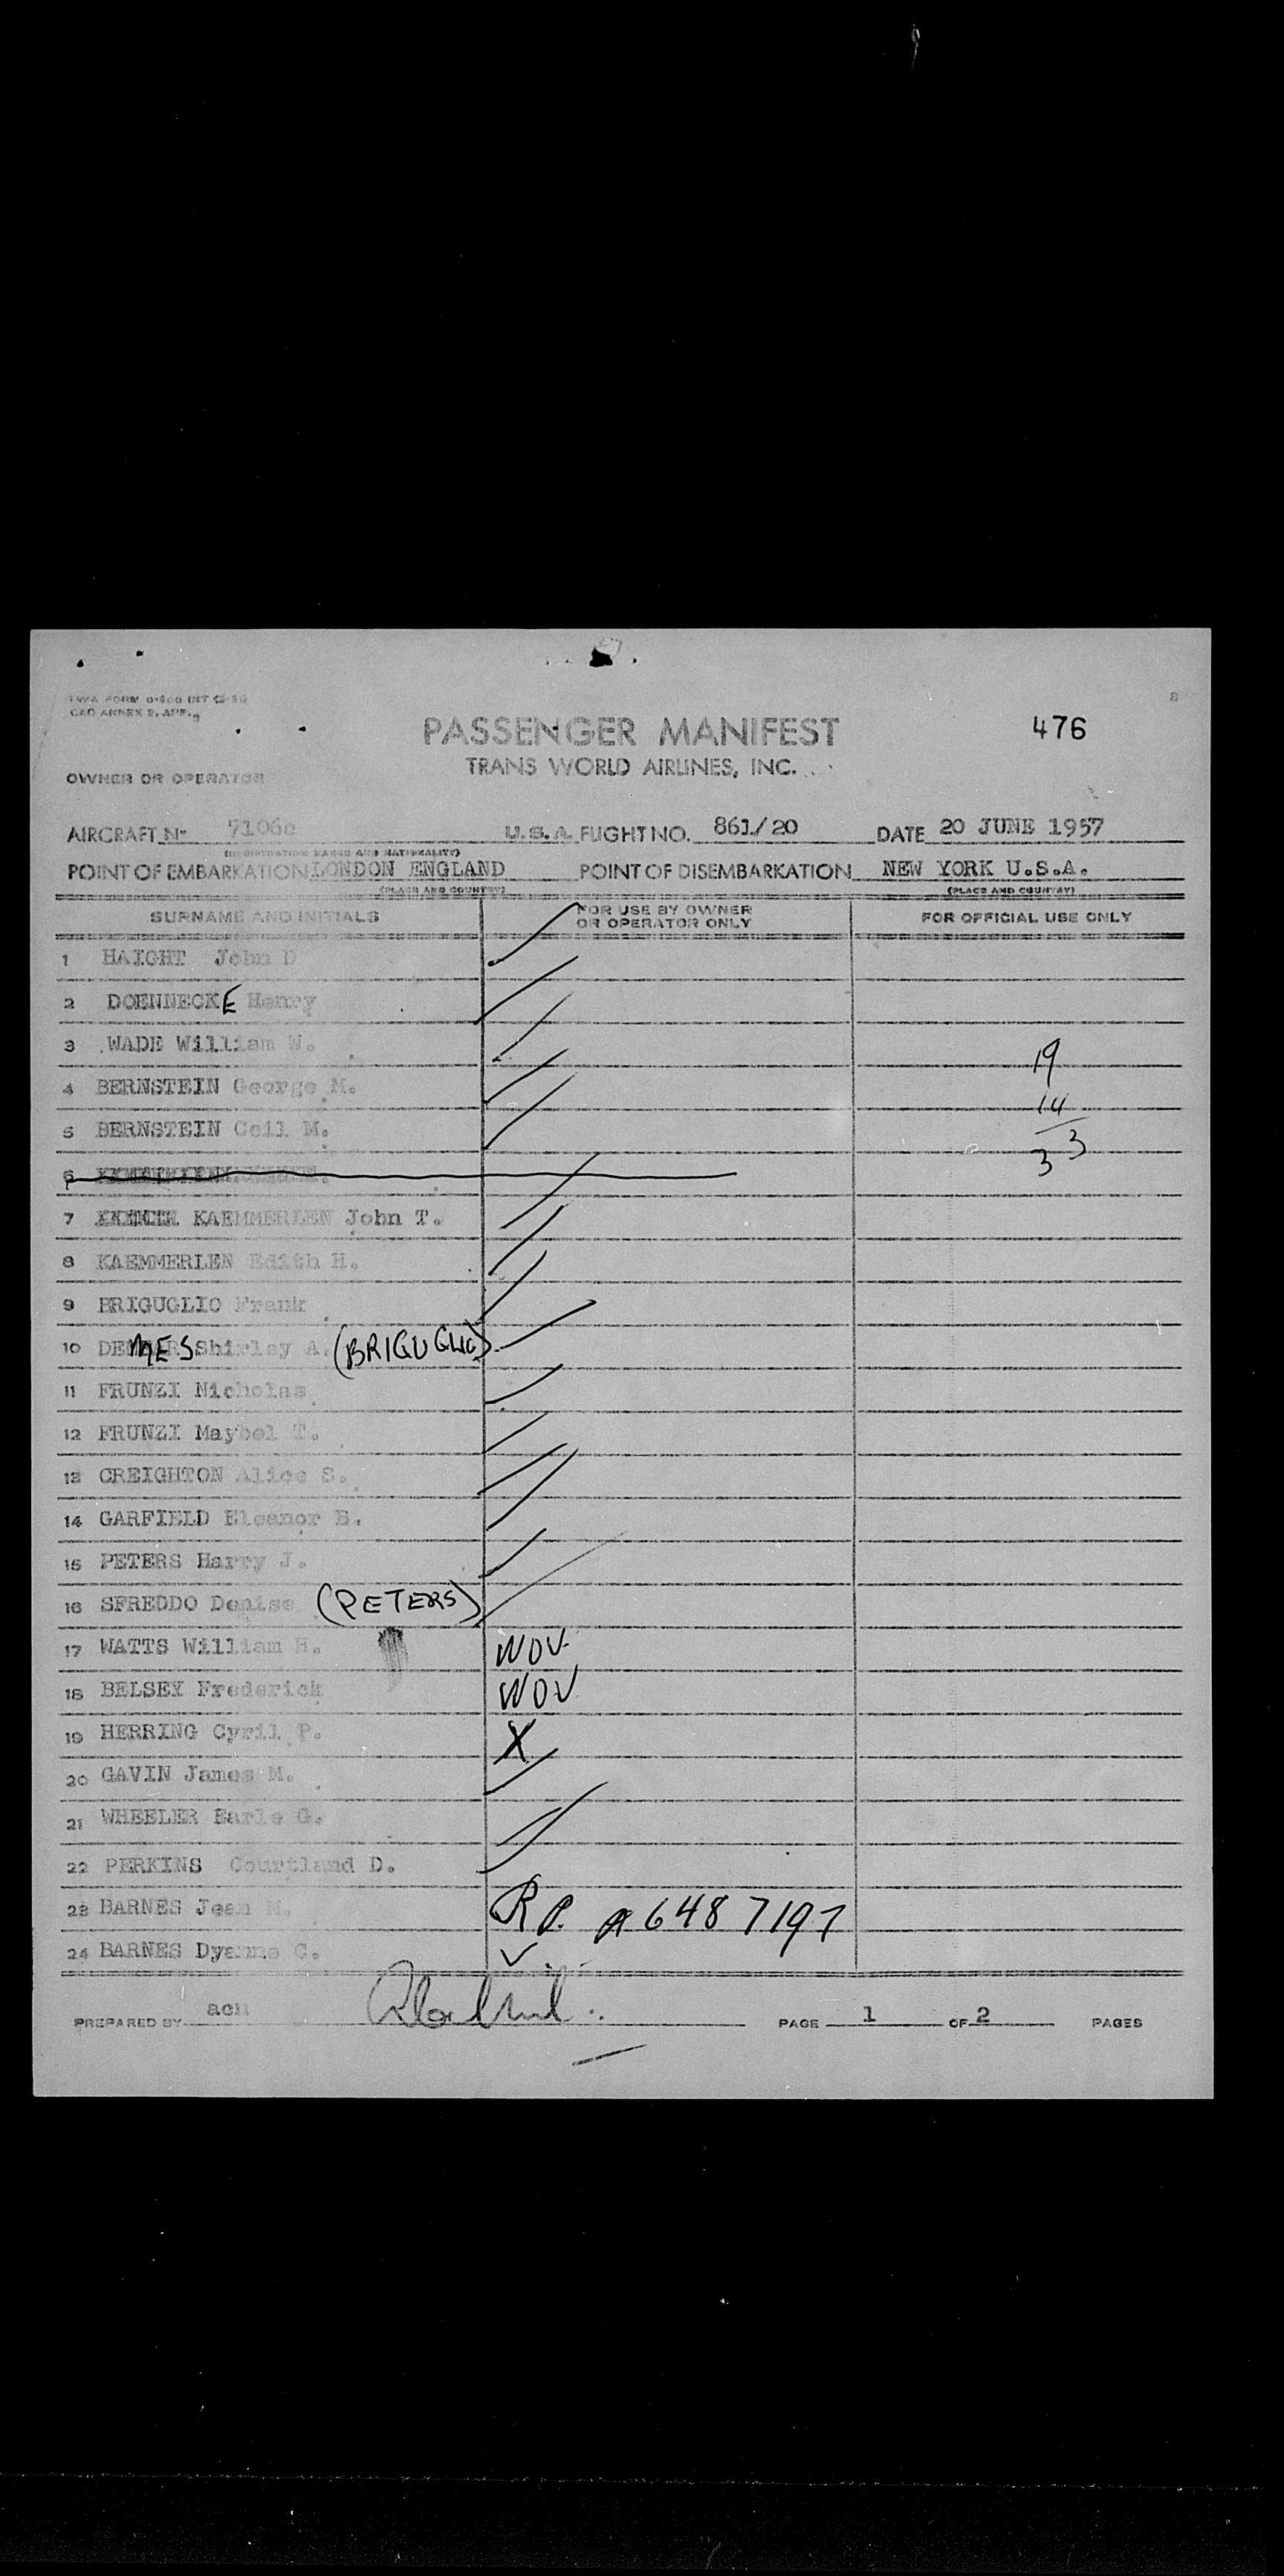 PASSENGER MANIFEST
476
TRANS WORLD AIRLINES, INC.
OWNER OR OPERATOR
AIRCRAFT Nº U.S.A. FLIGHT NO. 861/20 DATE 20 JUNE 1957
POINT OF EMBARKATION LONDON ENGLAND POINT OF DISEMBARKATION NEW YORK U.S.A.
(PLACE AND COUNTRY) (PLACE AND COUNTRY)
SURNAME AND INITIALS FOR USE BY OWNER OR OPERATOR ONLY FOR OFFICIAL USE ONLY
1 HAIGHT John D
2 DOENNECKE Henry
3 WADE William W.
19
4 BERNSTEIN George M.
14
5 BERNSTEIN Ceil M.
33
6
7 KAEMMERLEN John T.
8 KAEMMERLEN Edith H.
9 BRIGUGLIO Frank
10 DEMES Shirley A. (BRIGUGLIO)
11 FRUNZI Nicholas
12 FRUNZI Maybel T.
13 CREIGHTON Alice S.
14 GARFIELD Eleanor B.
15 PETERS Harry J.
16 SFREDDO Denise (PETERS)
17 WATTS William H. WOV
18 BELSEY Frederick WOV
19 HERRING Cyril P. X
20 GAVIN James M.
21 WHEELER Earle G.
22 PERKINS Courtland D.
23 BARNES Jean M. RP. A6487197
24 BARNES Dyanne C.
PREPARED BY acn PAGE 1 OF 2 PAGES